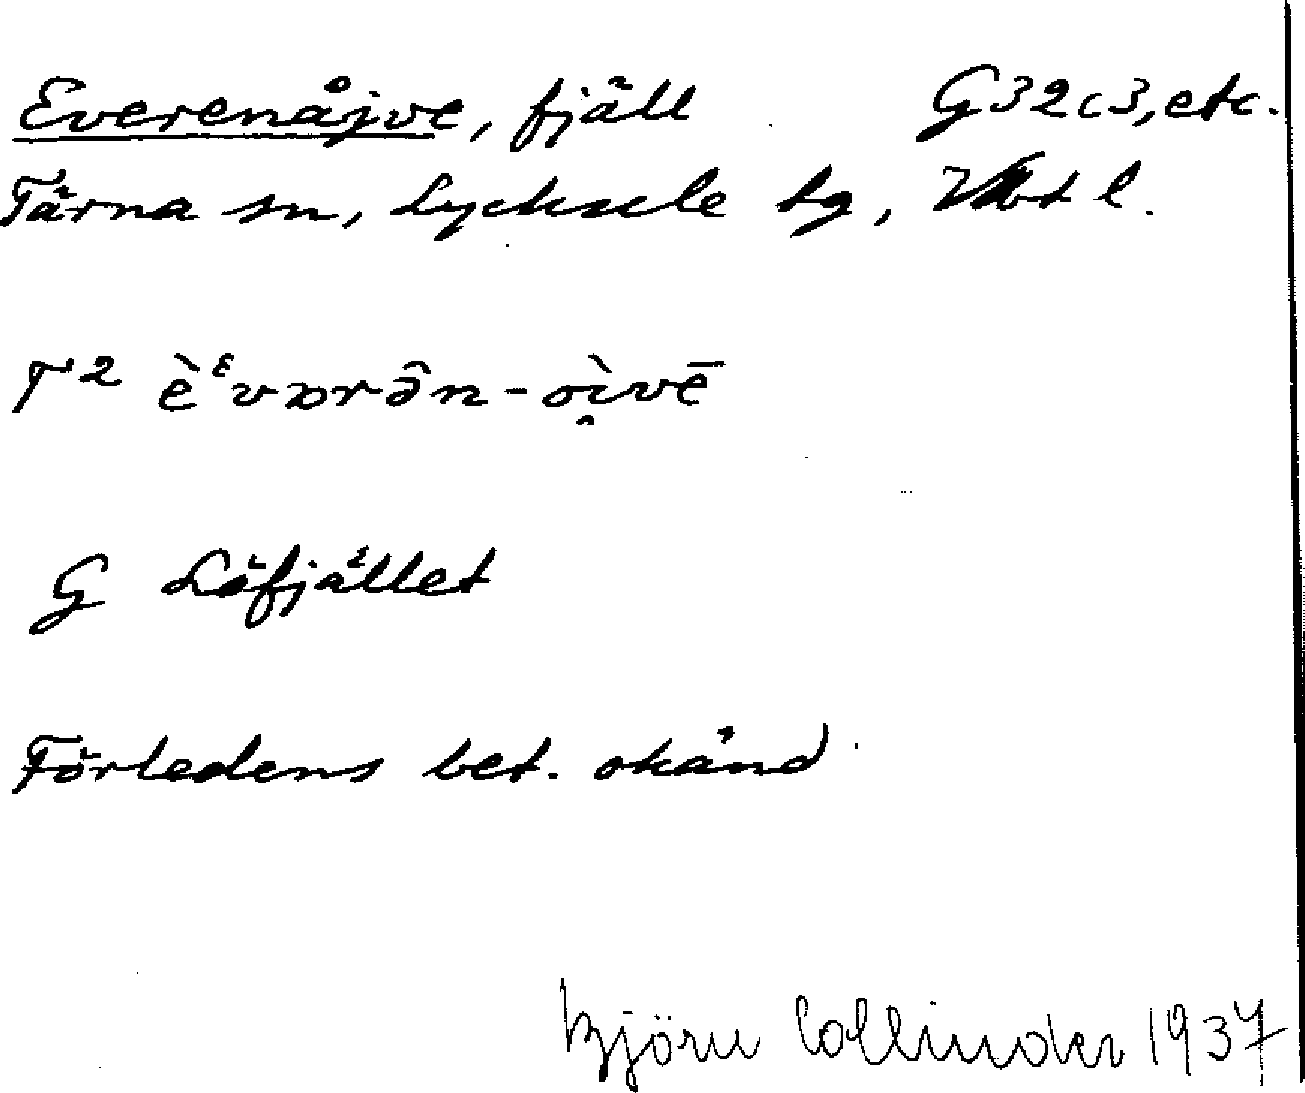 Everenåjve, fjäll G32c3, etc.
Tärna sn, Lycksele lg, Vbt l.
T² è ͨvɒrə̑n-ọì̯vē
G Löfjället
Förledens bet. okänd
Björn Collinder 1937